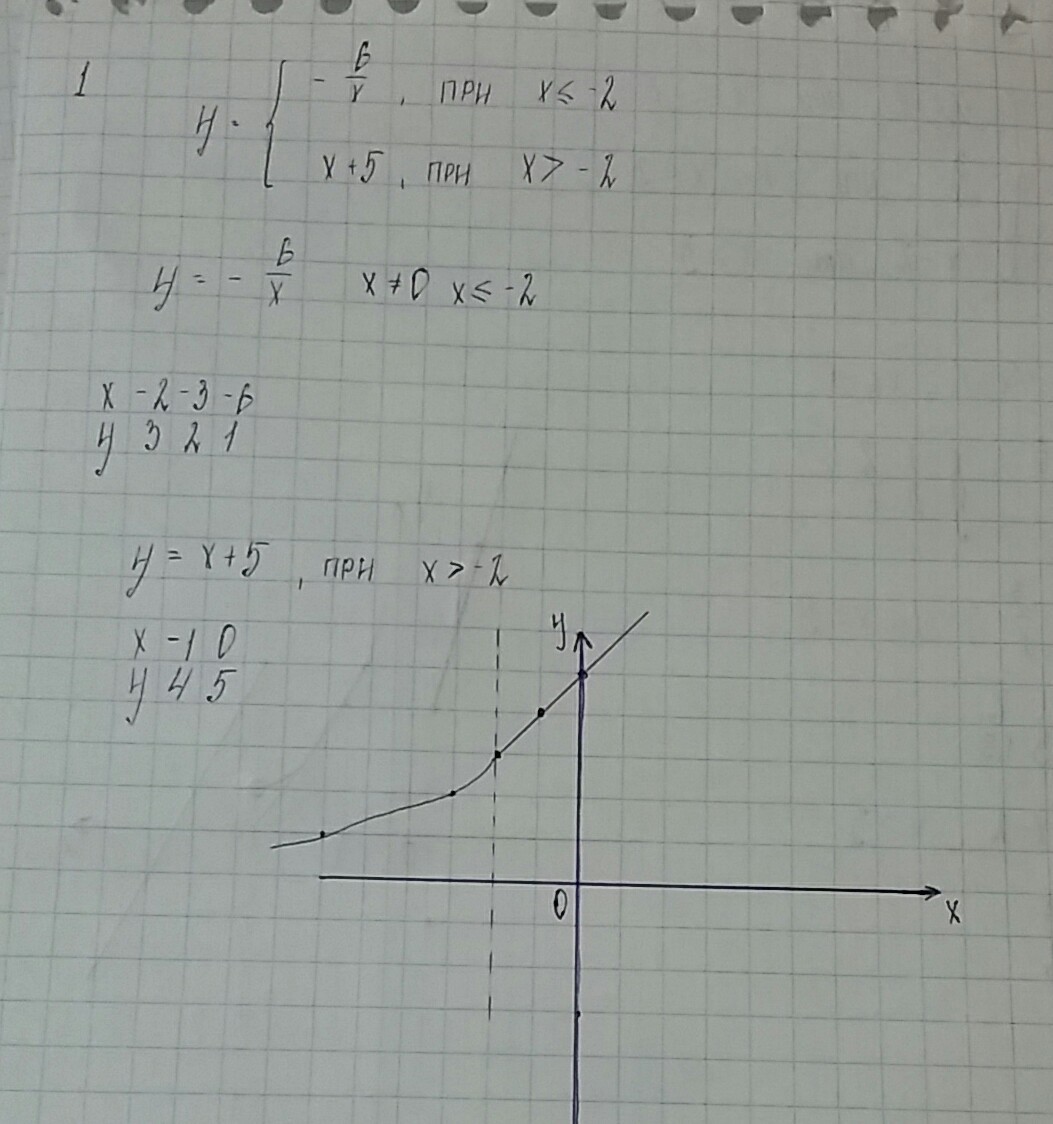 1
y = { - 6/x , при x ≤ -2
x + 5 , при x > -2
y = - 6/x x ≠ 0 x ≤ -2
x -2 -3 -6
y 3 2 1
y = x + 5 , при x > -2
x -1 0
y 4 5
y
0
x